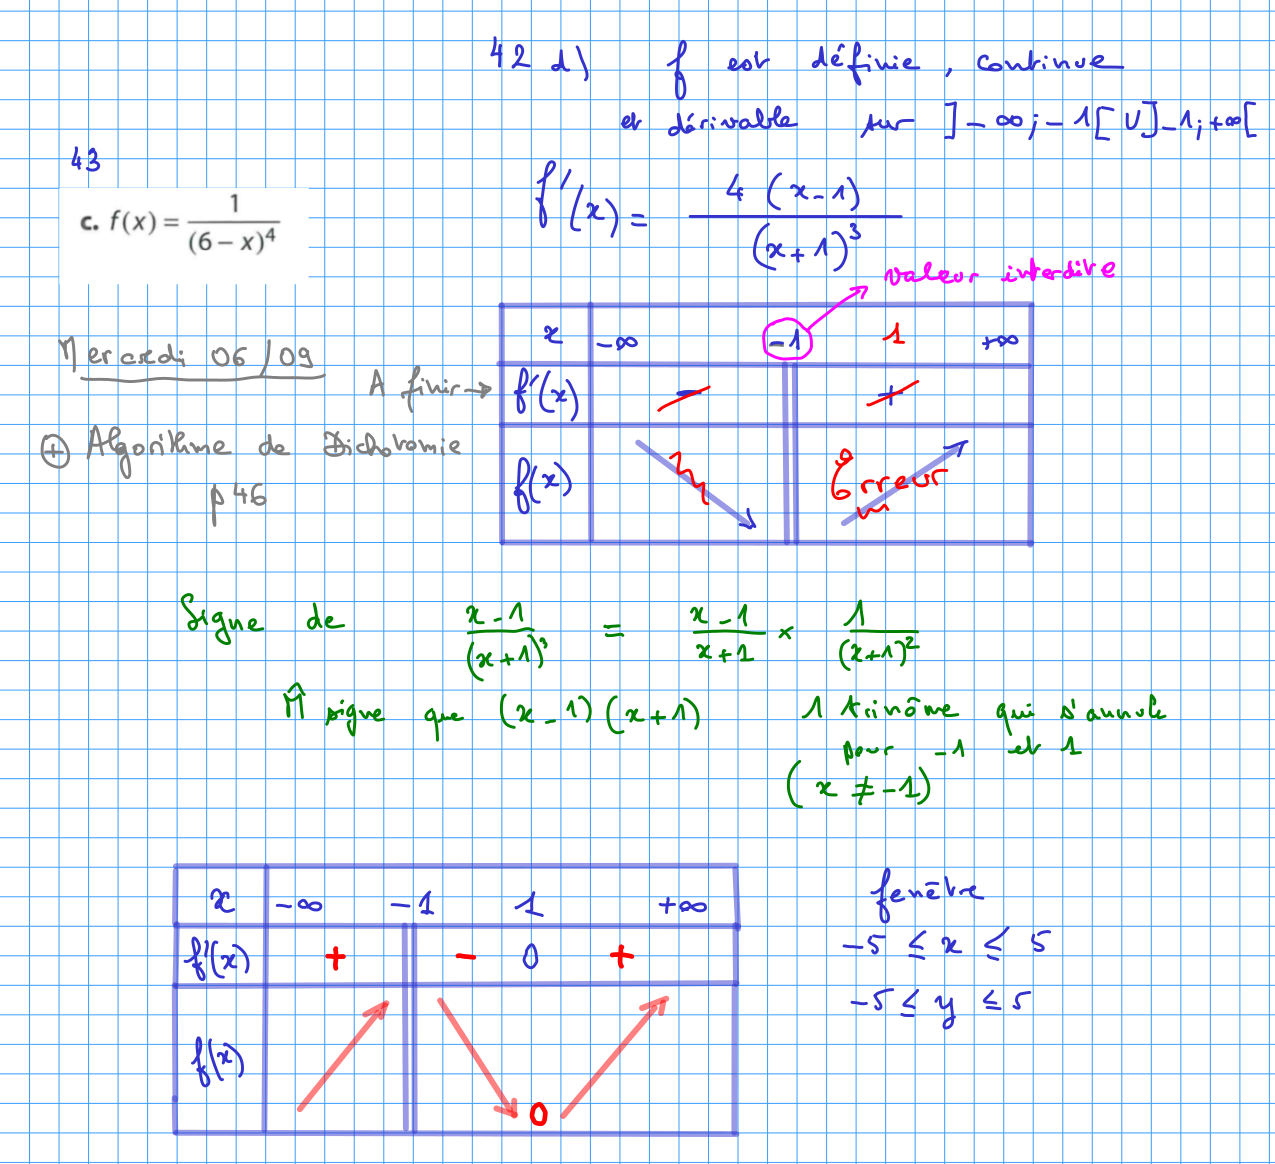 42 d) f est définie, continue
et dérivable sur ]-∞;-1[ U ]-1;+∞[
43
c. f(x) = 1/(6 – x)⁴
f'(x) = 4 (x-1)/(x+1)³
valeur interdite
x -∞ -1 1 +∞
Mercredi 06/09
A finir → f'(x) - +
⊕ Algorithme de Dichotomie
p 46
f(x) Erreur
Signe de (x-1)/(x+1)³ = (x-1)/(x+1) × 1/(x+1)²
M̂ signe que (x-1)(x+1) 1 trinôme qui s'annule
pour -1 et 1
(x ≠ -1)
x -∞ -1 1 +∞
f'(x) + - 0 +
f(x) 0
fenêtre
-5 ≤ x ≤ 5
-5 ≤ y ≤ 5